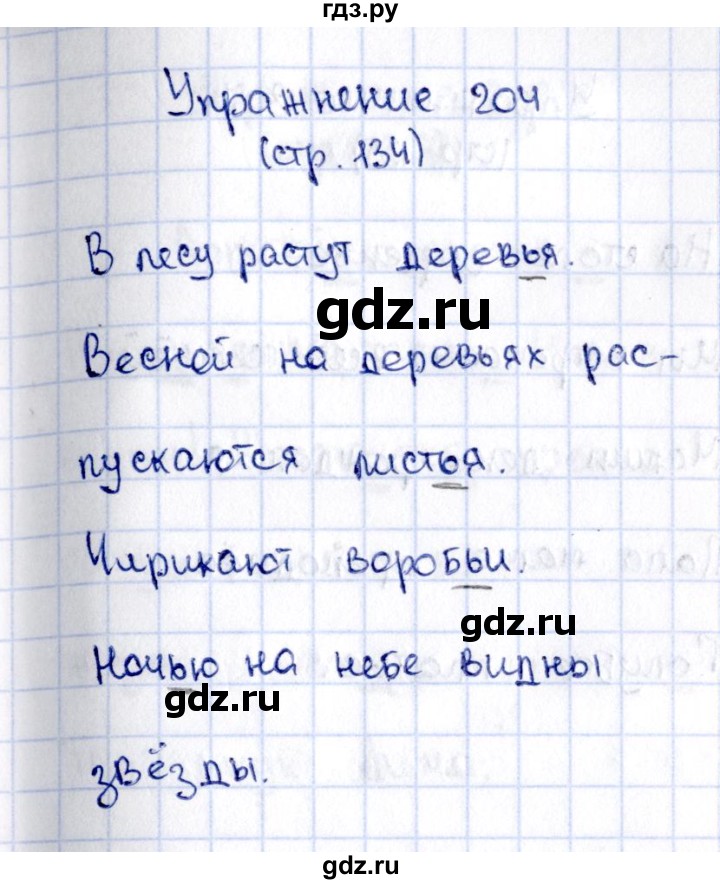 гдз.ру
Упражнение 204
(стр. 134)
В лесу растут деревья.
gdz.ru
Весной на деревьях рас-
пускаются листья.
Чирикают воробьи.
gdz.ru
Ночью на небе видны
gdz.ru
звёзды.
gdz.ru